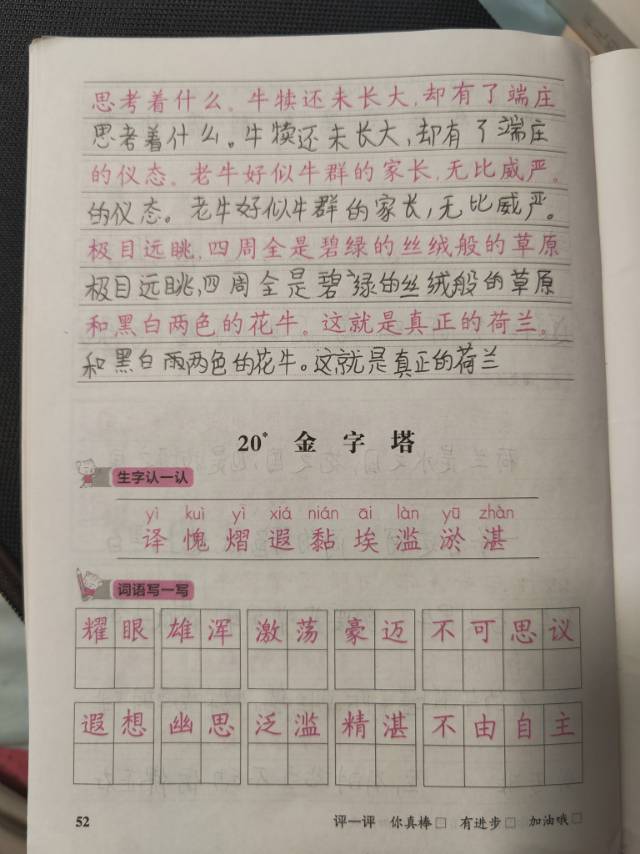 思考着什么。牛犊还未长大,却有了端庄
思考着什么。牛犊还未长大,却有了端庄
的仪态。老牛好似牛群的家长,无比威严。
的仪态。老牛好似牛群的家长,无比威严。
极目远眺,四周全是碧绿的丝绒般的草原
极目远眺,四周全是碧绿的丝绒般的草原
和黑白两色的花牛。这就是真正的荷兰。
和黑白两色的花牛。这就是真正的荷兰
20* 金字塔
生字认一认
yì kuì yì xiá nián āi làn yū zhàn
译 愧 熠 遐 黏 埃 滥 淤 湛
词语写一写
耀眼 雄浑 激荡 豪迈 不可思议
遐想 幽思 泛滥 精湛 不由自主
52 评一评 你真棒□ 有进步□ 加油哦□